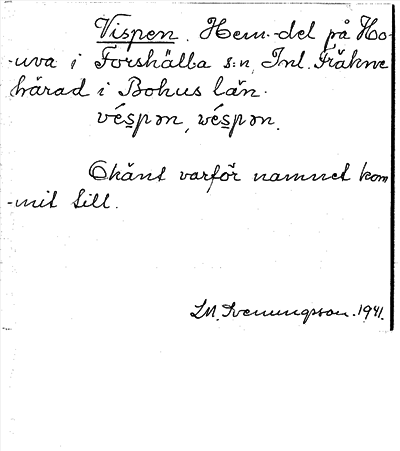 Vispen. Hem.-del på Ho-
-uva i Forshälla s:n, Inl. Fräkne
härad i Bohus län.
véspən, véspən.
Okänt varför namnet kom
-mit till.
1941.